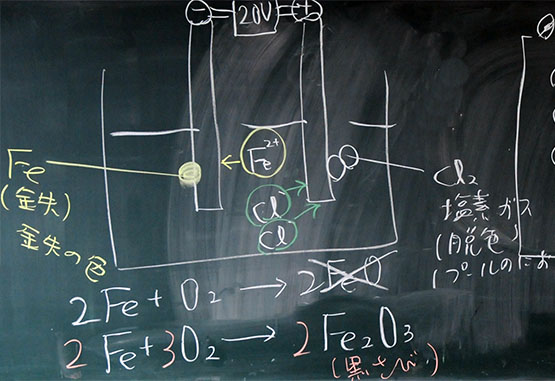 − 20V +
Fe²⁺
Fe
(金失)
金失の色
Cl
Cl
Cl₂
塩素ガス
(脱色)
(プールのにお
2Fe + O₂ → 2FeO
2Fe+3O₂ → 2Fe₂O₃
(黒サビ)